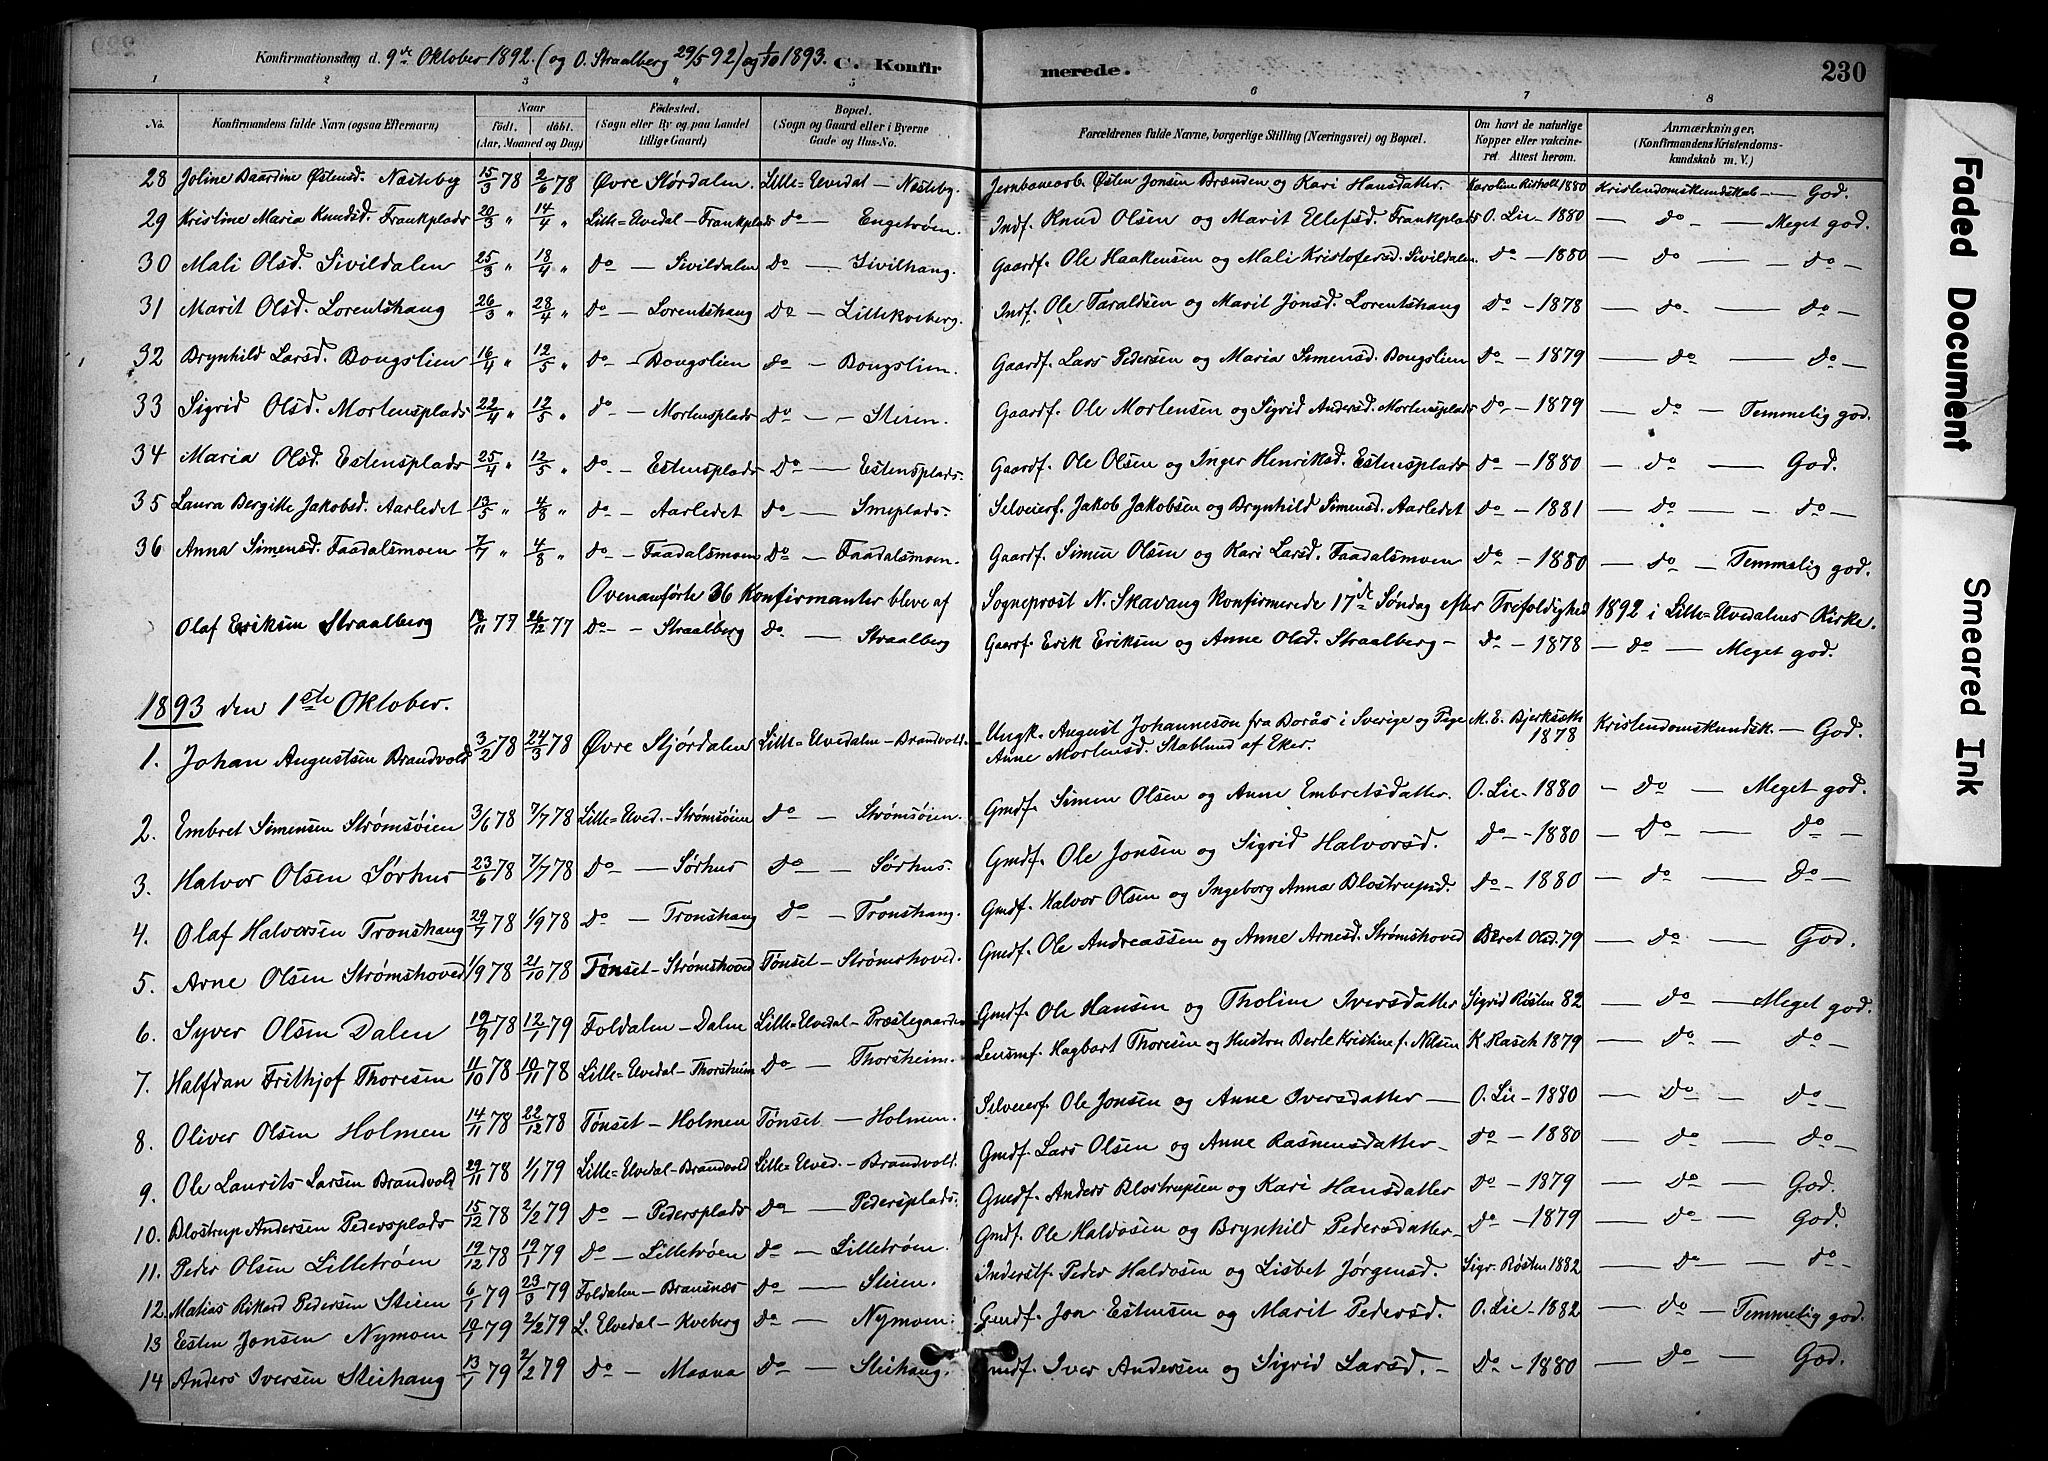 Konfirmationsdag d. 9de Oktober 1892. (og O. Straalberg 29/5 92) og 1/10 1893. C. Konfir merede. 230
1 2 3 4 5 6 7 8
No. Konfirmandens fulde Navn (ogsaa Efternavn) Naar födt. döbt. (Aar, Maaned og Dag) Födested. (Sogn eller By og paa Landet tillige Gaard) Bopæl. (Sogn og Gaard eller i Byerne Gade og Hus-No. Forældrenes fulde Navne, borgerlige Stilling (Næringsvei) og Bopæl. Om havt de naturlige Kopper eller vakcineret. Attest herom. Anmærkninger. (Konfirmandens Kristendomskundskab m. V.)
28 Joline Baardine Østensd. Næsteby 15/3 78 2/6 78 Øvre Størdalen. Lille-Elvedal – Næsteby. Jernbanearb. Østen Jonsen Brænden og Kari Hansdatter. Karoline Risholt 1880 Kristendomskundskab – God.
29 Kristine Maria Knudsd. Frankplads 20/3 " 14/4 " Lille=Elvedal – Frankplads do – Engetrøen. Indf. Knud Olsen og Marit Ellefsd. Frankplads O. Lie – 1880 – do – Meget god.
30 Mali Olsd. Sivildalen 25/3 " 18/4 " do – Sivildalen do – Sivilhaug. Gaardf. Ole Haakensen og Mali Kristofersd. Sivildalen do – 1880 – do – do –
31 Marit Olsd. Lorentshaug 26/3 " 28/4 " do – Lorentshaug do – Lillekveberg. Indf. Ole Taraldsen og Marit Jonsd. Lorentshaug do – 1878 – do – do –
32 Brynhild Larsd. Bougslien 16/4 " 12/5 " do – Bougslien do – Bougslien. Gaardf. Lars Pedersen og Maria Simensd. Bougslien do – 1879 – do – do –
33 Sigrid Olsd. Mortensplads 22/4 " 12/5 " do – Mortensplads do – Steien. Gaardf. Ole Mortensen og Sigrid Andersd. Mortensplads do – 1879 – do – Temmelig god.
34 Maria Olsd. Estensplads 25/4 " 12/5 " do – Estensplads do – Estensplads. Gaardf. Ole Olsen og Inger Henriksd. Estensplads do – 1880 – do – God.
35 Laura Bergitte Jakobsd. Aarledet 13/5 " 4/8 " do – Aarledet do – Smeplads. Selveierf. Jakob Jakobsen og Brynhild Simensd. Aarledet do – 1881 – do – do –
36 Anna Simensd. Faadalsmoen 7/7 " 4/8 " do – Faadalsmoen do – Faadalsmoen. Gaardf. Simen Olsen og Kari Larsd. Faadalsmoen do – 1880 – do – Temmelig god.
Ovenanførte 36 Konfirmanter bleve af Sogneprost N. Skavang konfirmerede 17de Søndag efter Trefoldighed 1892 i Lille=Elvedalens Kirke.
Olaf Eriksen Straalberg 13/11 77 26/12 77 do – Straalberg do – Straalberg Gaardf. Erik Eriksen og Anne Olsd. Straalberg – do – 1878 – do – Meget god.
1893 den 1ste Oktober.
1. Johan Augustsen Brandvold 3/2 78 24/3 78 Øvre Stjørdalen Lille=Elvedalen – Brandvold. Ungk. August Johannesen fra Borås i Sverige og Pige Anne Mortensd. Stablund af Eker. M. E. Bjerksæth 1878 Kristendomskundsk. – God.
2. Embret Simensen Strømsøien 3/6 78 7/7 78 Lille=Elved. – Strømsøien do – Strømsøien. Gmdf. Simen Olsen og Anne Embretsdatter. O. Lie – 1880 – do – Meget god.
3. Halvor Olsen Sørhus 23/6 78 7/7 78 do – Sørhus do – Sørhus. Gmdf. Ole Jonsen og Sigrid Halvorsd. do – 1880 – do – do –
4. Olaf Halvorsen Tronshaug 29/7 78 1/9 78 do – Tronshaug do – Tronshaug. Gmdf. Halvor Olsen og Ingeborg Anna Blostrupsd. do – 1880 – do – do –
5. Arne Olsen Strømshoved 1/9 78 21/10 78 Tønset – Strømshoved Tønset – Strømshoved. Gmdf. Ole Andreassen og Anne Arnesd. Strømshoved Beret Olsd. 79 – do – God.
6. Syver Olsen Dalen 19/9 78 12/1 79 Foldalen – Dalen Lille=Elvedal – Præstegaarden Gmdf. Ole Hansen og Tholine Iversdatter Sigrid Røsten 82 – do – Meget god.
7. Halfdan Frithjof Thoresen 11/10 78 10/11 78 Lille=Elvedal – Thorsheim do – Thorsheim. Lensmf. Hagbart Thoresen og Hustru Berle Kristine f. Nilsen K. Rasch 1879 – do – do –
8. Oliver Olsen Holmen 14/11 78 22/12 78 Tønset – Holmen Tønset – Holmen. Selveierf. Ole Jonsen og Anne Iversdatter – O. Lie – 1880 – do – do –
9. Ole Laurits Larsen Brandvold 29/11 78 1/1 79 Lille=Elvedal – Brandvold Lille=Elved. – Brandvold. Gmdf. Lars Olsen og Anne Rasmusdatter – do – 1880 – do – do –
10. Blostrup Andersen Pedersplads 15/12 78 2/2 79 do – Pedersplads do – Pedersplads. Gmdf. Anders Blostrupsen og Kari Hansdatter do – 1879 – do – God.
11. Peder Olsen Lilletrøen 19/12 78 19/1 79 do – Lilletrøen do – Lilletrøen. Gmdf. Ole Haldosen og Brynhild Pedersdatter – do – 1879 – do – God.
12. Matias Rikard Pedersen Steien 6/1 79 23/3 79 Foldalen – Bransnæs do – Steien. Inderstf. Peder Haldosen og Lisbet Jørgensd. Sigr. Røsten 1882 – do – do –
13 Esten Jonsen Nymoen 10/1 79 2/2 79 L. Elvedal – Kveberg do – Nymoen. Gmdf. Jon Estensen og Marit Pedersd. O. Lie – 1882 – do – Temmelig god.
14 Anders Iversen Steihaug 13/1 79 2/2 79 do – Maana do – Steihaug. Gmdf. Iver Andersen og Sigrid Larsd. – do – 1880 – do – God.
Faded Document
Smeared Ink